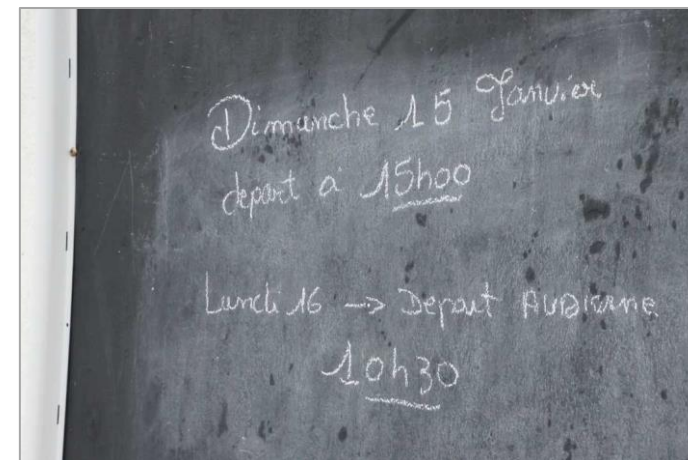 Dimanche 15 Janvier
depart à 15h00
Lundi 16 -> Depart AUDIERNE
10h30